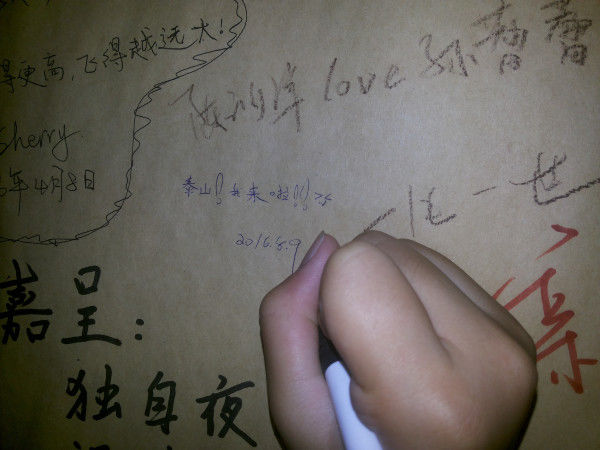 得更高,飞得越远大!
Sherry
年4月8日
love 孙
泰山!我来啦!!
2016.8.9
一生一世
嘉呈:
独自夜